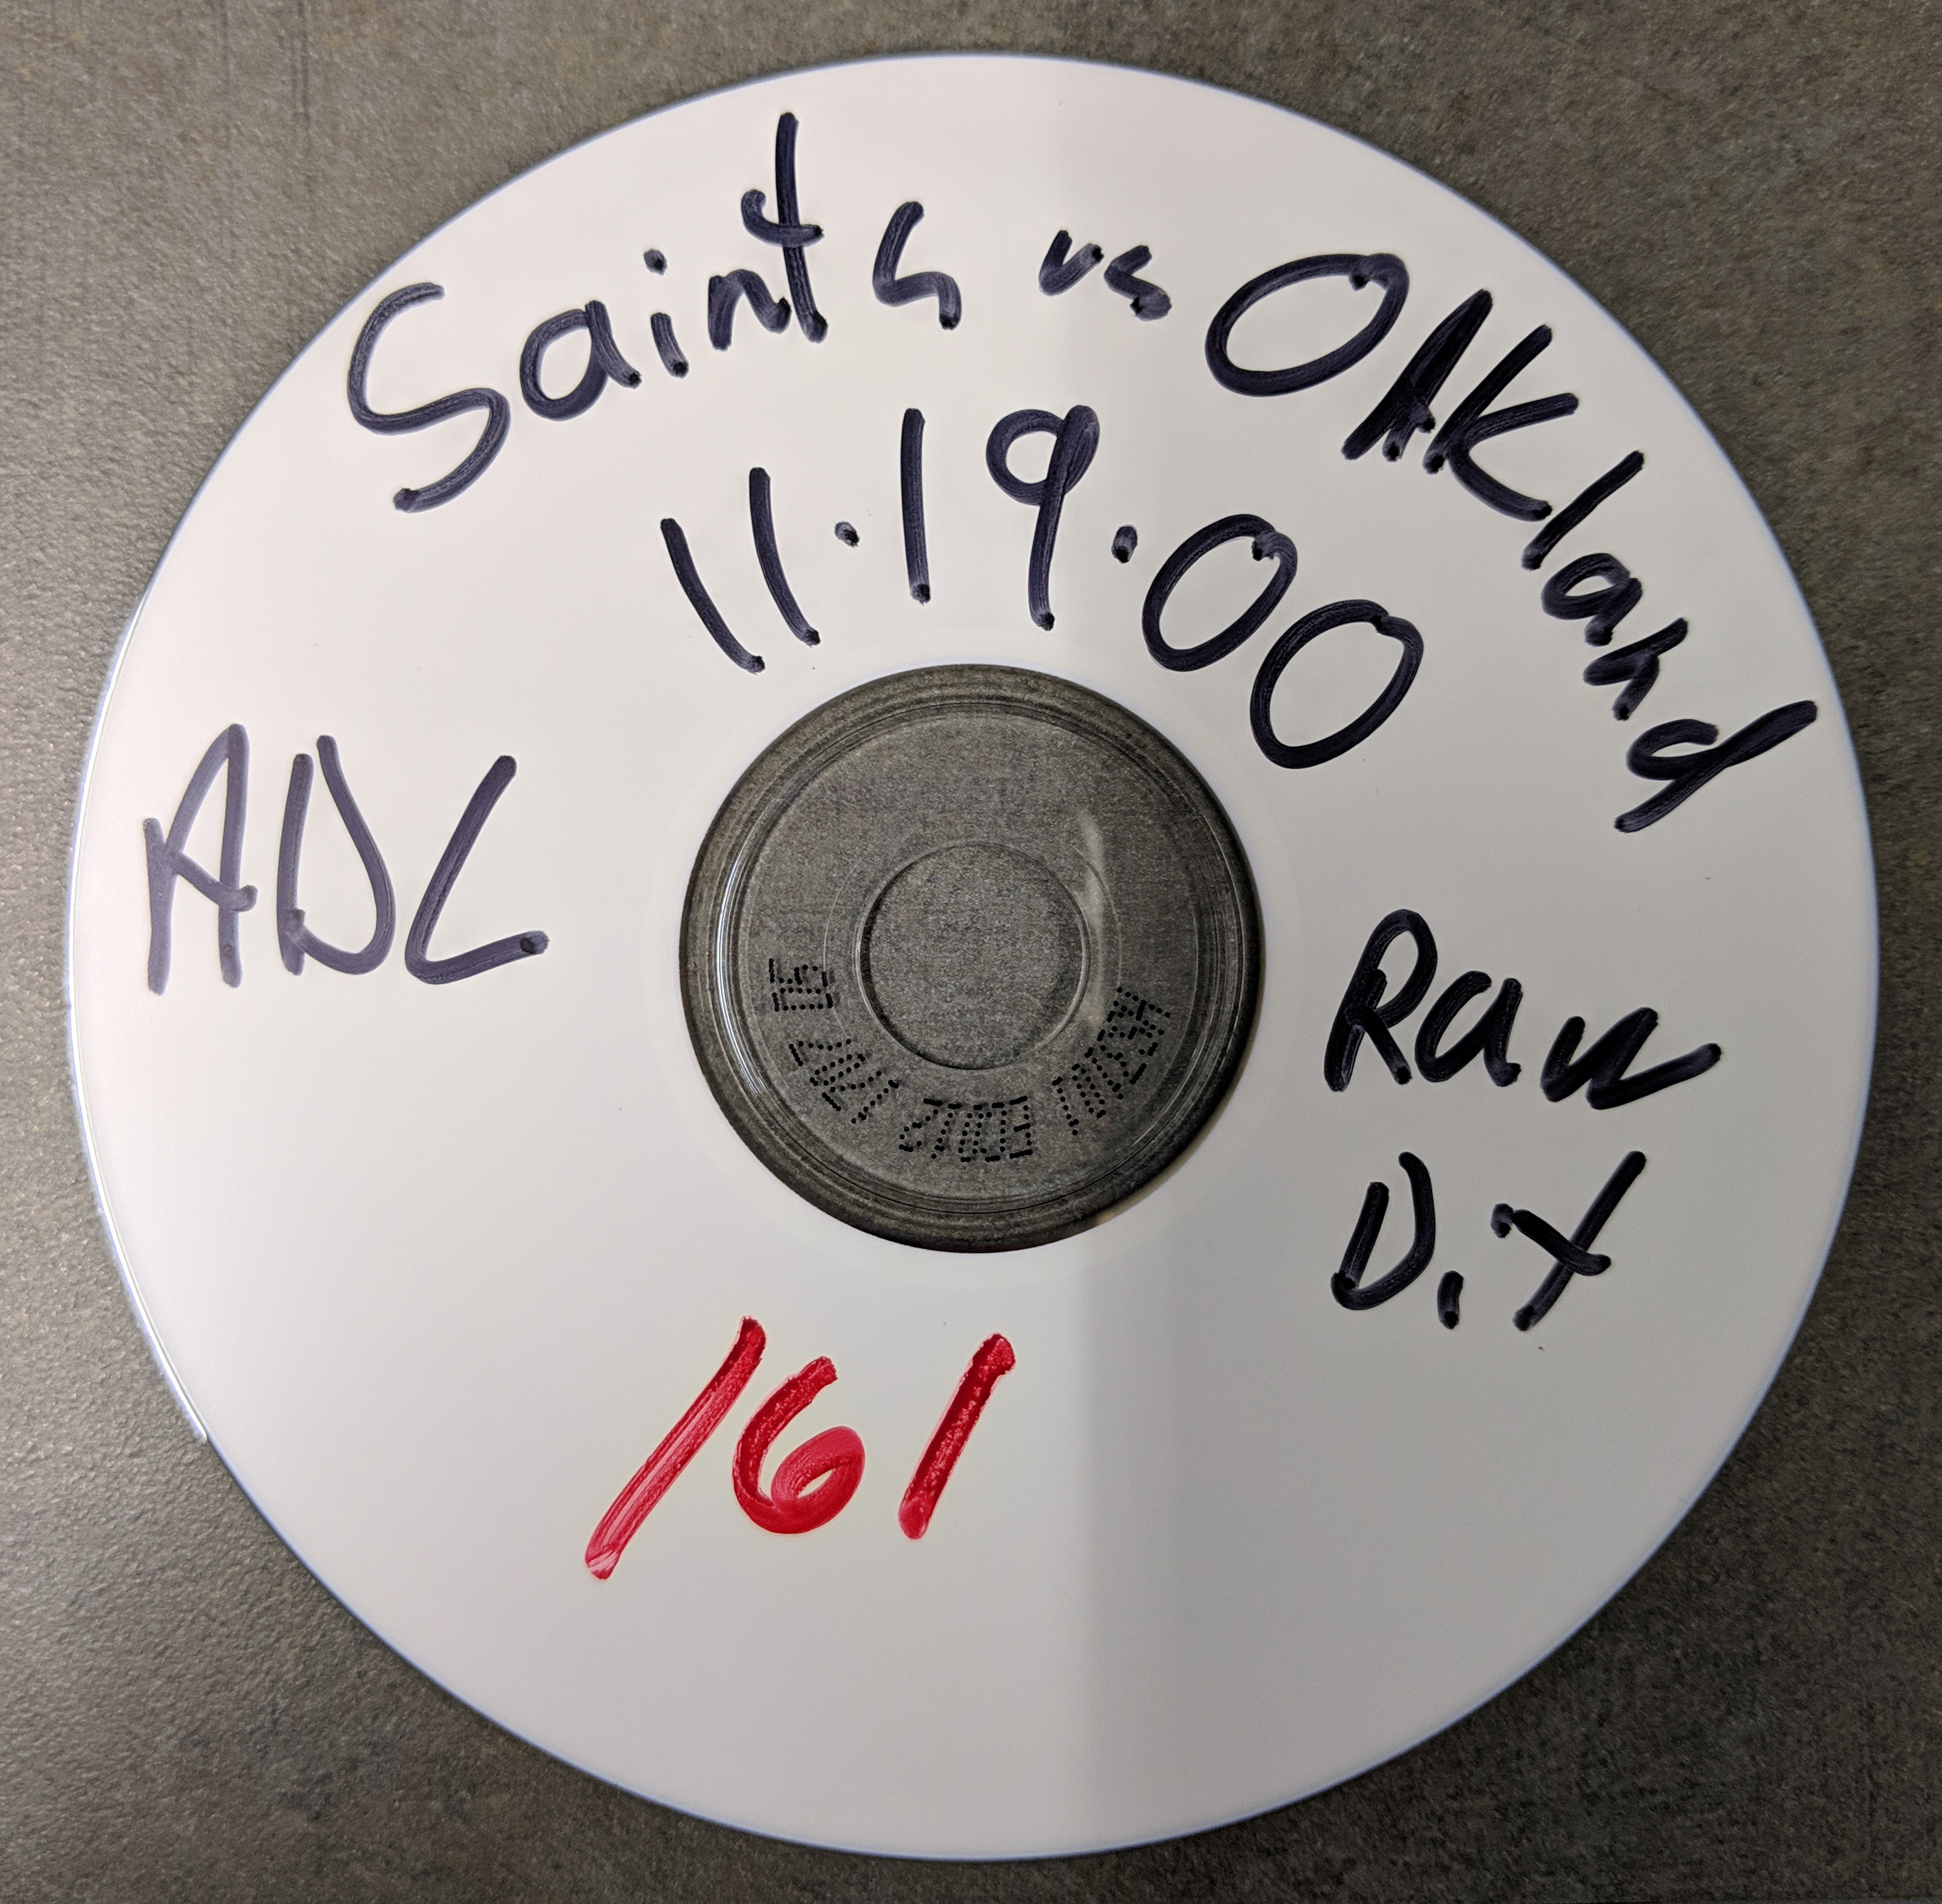 Saints vs OAKland
11·19·00
ADL
Raw
Dit
161